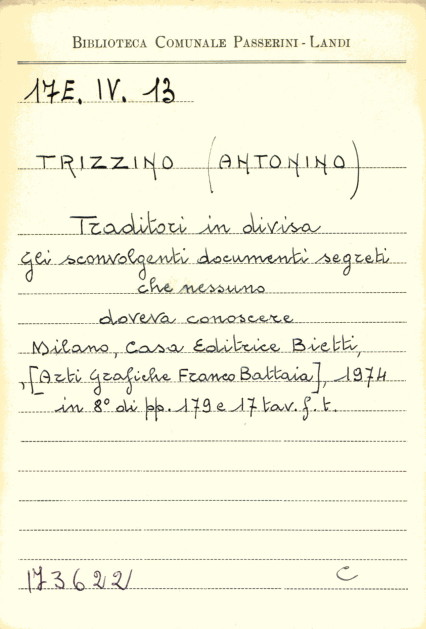 BIBLIOTECA COMUNALE PASSERINI - LANDI
17E. IV. 13
TRIZZINO (ANTONINO)
Traditori in divisa
Gli sconvolgenti documenti segreti
che nessuno
doveva conoscere
Milano, Casa Editrice Bietti,
,[Arti Grafiche Franco Battaia], 1974
in 8° di pp. 179 e 17 tav. f. t.
173622 C